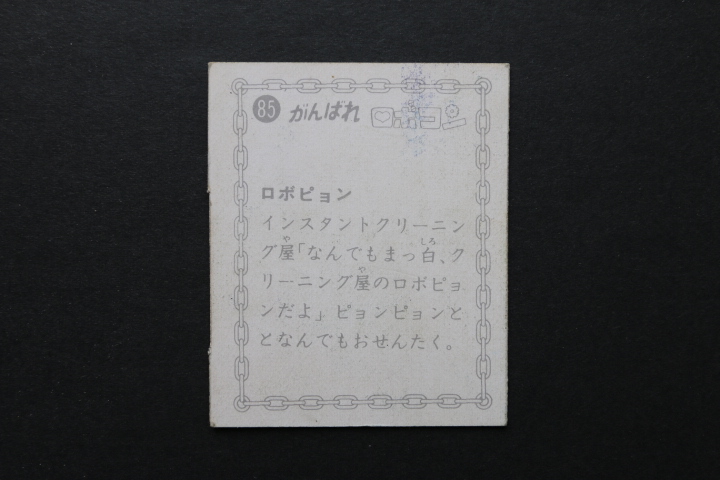 85 がんばれ ロボコン
ロボピョン
インスタントクリーニン
グ屋「なんでもまっ白、ク
リーニング屋のロボピョ
ンだよ」ピョンピョンと
となんでもおせんたく。